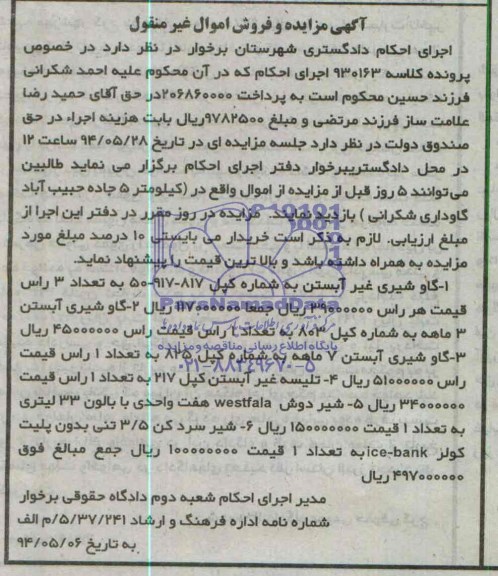 آگهی مزایده و فروش اموال غیر منقول
اجرای احکام دادگستری شهرستان برخوار در نظر دارد در خصوص
پرونده کلاسه ۹۳۰۱۶۳ اجرای احکام که در آن محکوم علیه احمد شکرانی
فرزند حسین محکوم است به پرداخت ۲۰۶۸۶۰۰۰۰در حق آقای حمید رضا
علامت ساز فرزند مرتضی و مبلغ ۹۷۸۲۵۰۰ریال بابت هزینه اجراء در حق
صندوق دولت در نظر دارد جلسه مزایده ای در تاریخ ۹۴/۰۵/۲۸ ساعت ۱۲
در محل دادگستریبرخوار دفتر اجرای احکام برگزار می نماید طالبین
می‌توانند ۵ روز قبل از مزایده از اموال واقع در (کیلومتر ۵ جاده حبیب آباد
گاوداری شکرانی ) بازدید نمایند. مزایده در روز مقرر در دفتر این اجرا از
مبلغ ارزیابی. لازم به ذکر است خریدار می بایستی ۱۰ درصد مبلغ مورد
مزایده به همراه داشته باشد و بالا ترین قیمت را پیشنهاد نماید.
۱-گاو شیری غیر آبستن به شماره کپل ۸۱۷-۹۱۷-۵۰ به تعداد ۳ راس
قیمت هر راس ۳۹۰۰۰۰۰۰ ریال جمعا ۱۱۷۰۰۰۰۰۰ ریال ۲-گاو شیری آبستن
۳ ماهه به شماره کپل ۸۰۳ به تعداد ۱ راس قیمت راس ۴۵۰۰۰۰۰۰ ریال
۳-گاو شیری آبستن ۷ ماهه به شماره کپل ۸۲۵ به تعداد ۱ راس قیمت
راس ۵۱۰۰۰۰۰۰ ریال ۴- تلیسه غیر آبستن کپل ۲۱۷ به تعداد ۱ راس قیمت
۳۴۰۰۰۰۰۰ ریال ۵- شیر دوش westfala هفت واحدی با بالون ۳۳ لیتری
به تعداد ۱ قیمت ۱۵۰۰۰۰۰۰۰ ریال ۶- شیر سرد کن ۳/۵ تنی بدون پلیت
کولر ice-bankبه تعداد ۱ قیمت ۱۰۰۰۰۰۰۰۰ ریال جمع مبالغ فوق
۴۹۷۰۰۰۰۰۰ ریال
مدیر اجرای احکام شعبه دوم دادگاه حقوقی برخوار
شماره نامه اداره فرهنگ و ارشاد ۵/۳۷/۲۴۱/م الف
به تاریخ ۹۴/۰۵/۰۶
ParsNamadData
پایگاه اطلاع رسانی مناقصه و مزایده
۰۲۱-۸۸۳۴۹۶۷۰-۵